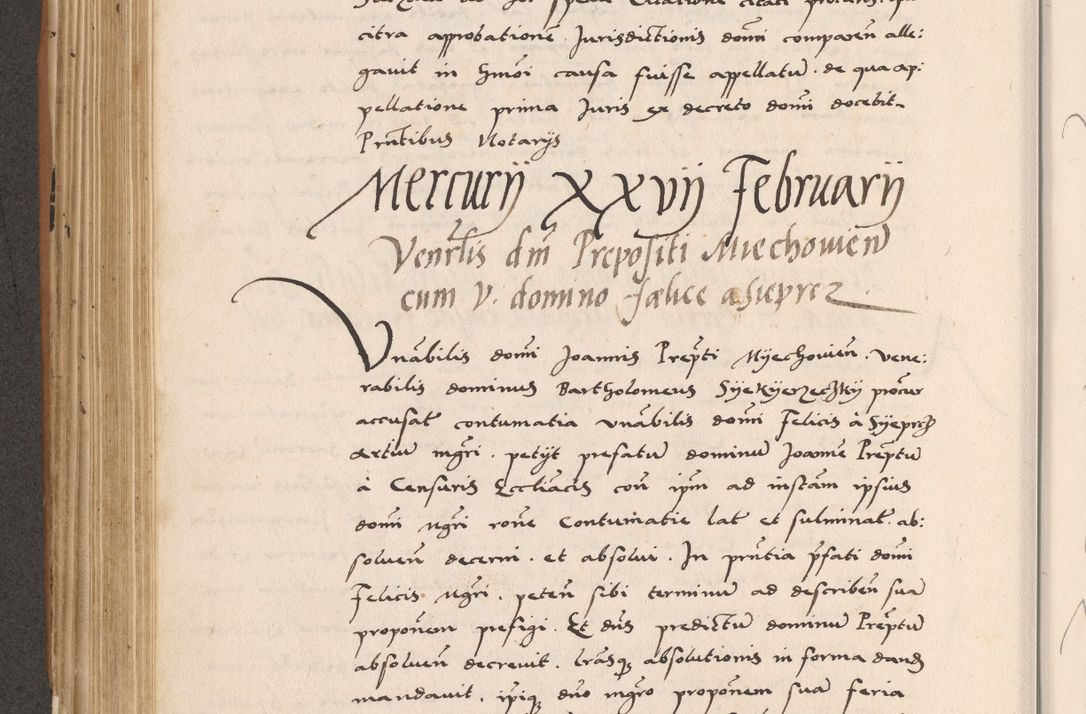 citra approbationē Jurisdictionis domī comparēn alle:
gauit in hmōi causa fuisse appellatū. de qua ap:
pellatione prima Juris ex decreto domī docebit
Prn̄tibus Notarijs
Mercurij xxvij Februarij
Venrlis dm̄ Prepositi Miechovien̄
cum v. domino fælice a Sieprcz
Vnābilis domī Joannis Prep̄ti Myechovien̄. vene:
rabilis dominus Bartholomeus procur
accusat̄ contumatia vnābilis domī Felicis à Syeprcz
Artiū mgr̄i. petijt prefatū dominū Joannē Prēptū
à Censuris Eccliacis con̄ ip̄m ad instām ipsius
domī mgr̄i rōne Contumatie lat̄ et fulminat̄. ab:
soluen̄ decerni. et absolui. In prn̄tia p̄fati domī
Felicis mgr̄i. peten̄ sibi terminū ad describen̄ suā
proponem prefigi. Et dn̄s predictū dominū Prēptū
absoluen̄ decrevit. lrāsq; absolutionis in forma dand
mandauit. ip̄iq; dn̄o mgr̄o proponem suā feria